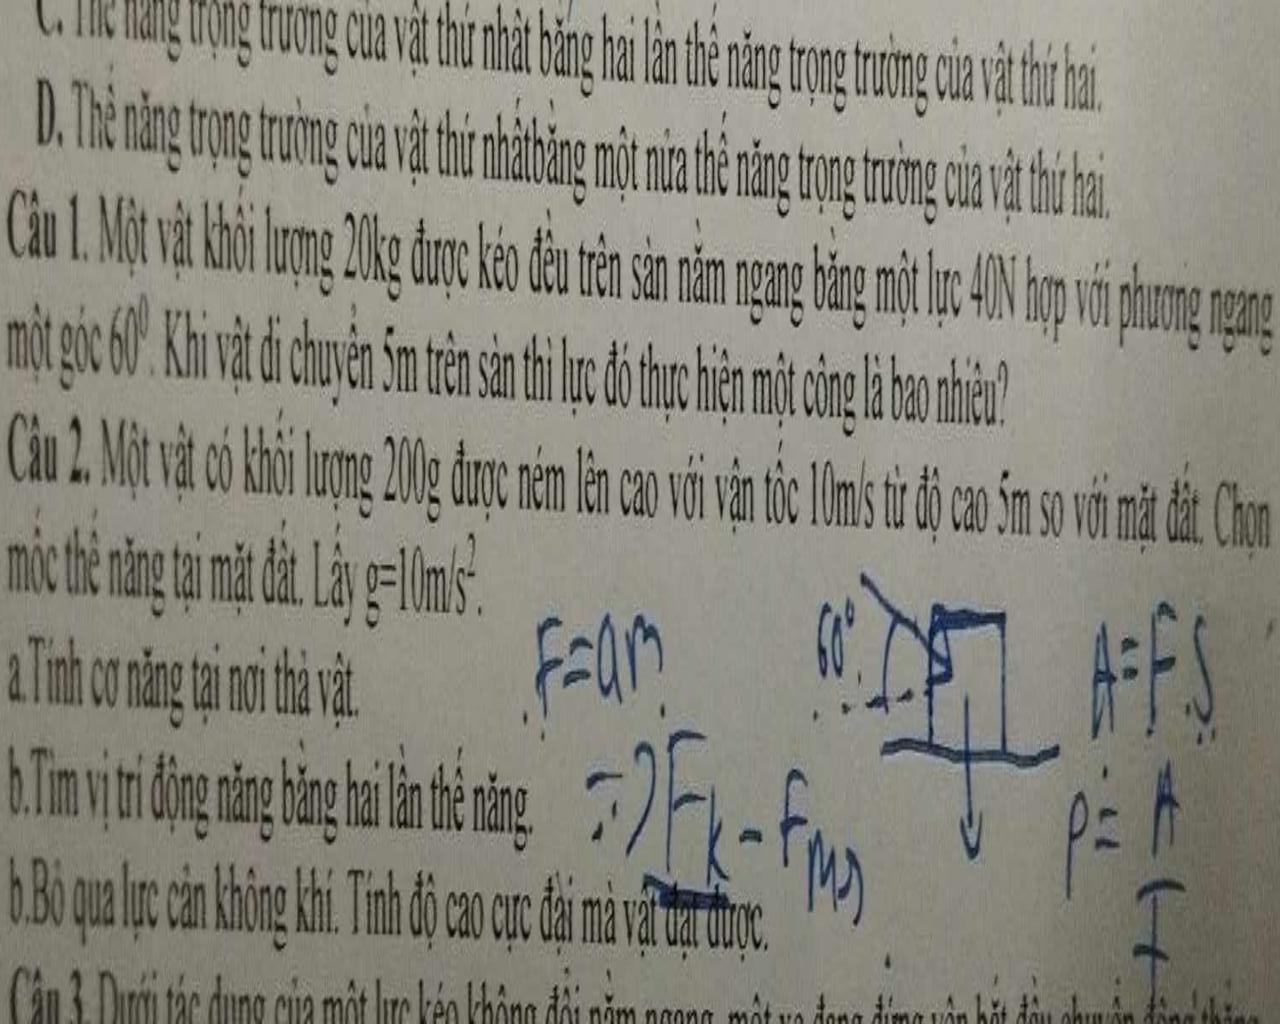 C. Thế năng trọng trường của vật thứ nhất bằng hai lần thế năng trọng trường của vật thứ hai.
D. Thế năng trọng trường của vật thứ nhấtbằng một nửa thế năng trọng trường của vật thứ hai.
Câu 1. Một vật khối lượng 20kg được kéo đều trên sàn nằm ngang bằng một lực 40N hợp với phương ngang
một góc 60⁰. Khi vật di chuyển 5m trên sàn thì lực đó thực hiện một công là bao nhiêu?
Câu 2. Một vật có khối lượng 200g được ném lên cao với vận tốc 10m/s từ độ cao 5m so với mặt đất. Chọn
mốc thế năng tại mặt đất. Lấy g=10m/s².
a.Tính cơ năng tại nơi thả vật.
F=am
60°
A=F.S
b.Tìm vị trí động năng bằng hai lần thế năng.
=> Fk - Fms
P = A
b.Bỏ qua lực cản không khí. Tính độ cao cực đại mà vật đạt được.
Câu 3. Dưới tác dụng của một lực kéo không đổi nằm ngang, một xe đang đứng yên bắt đầu chuyển động thẳng